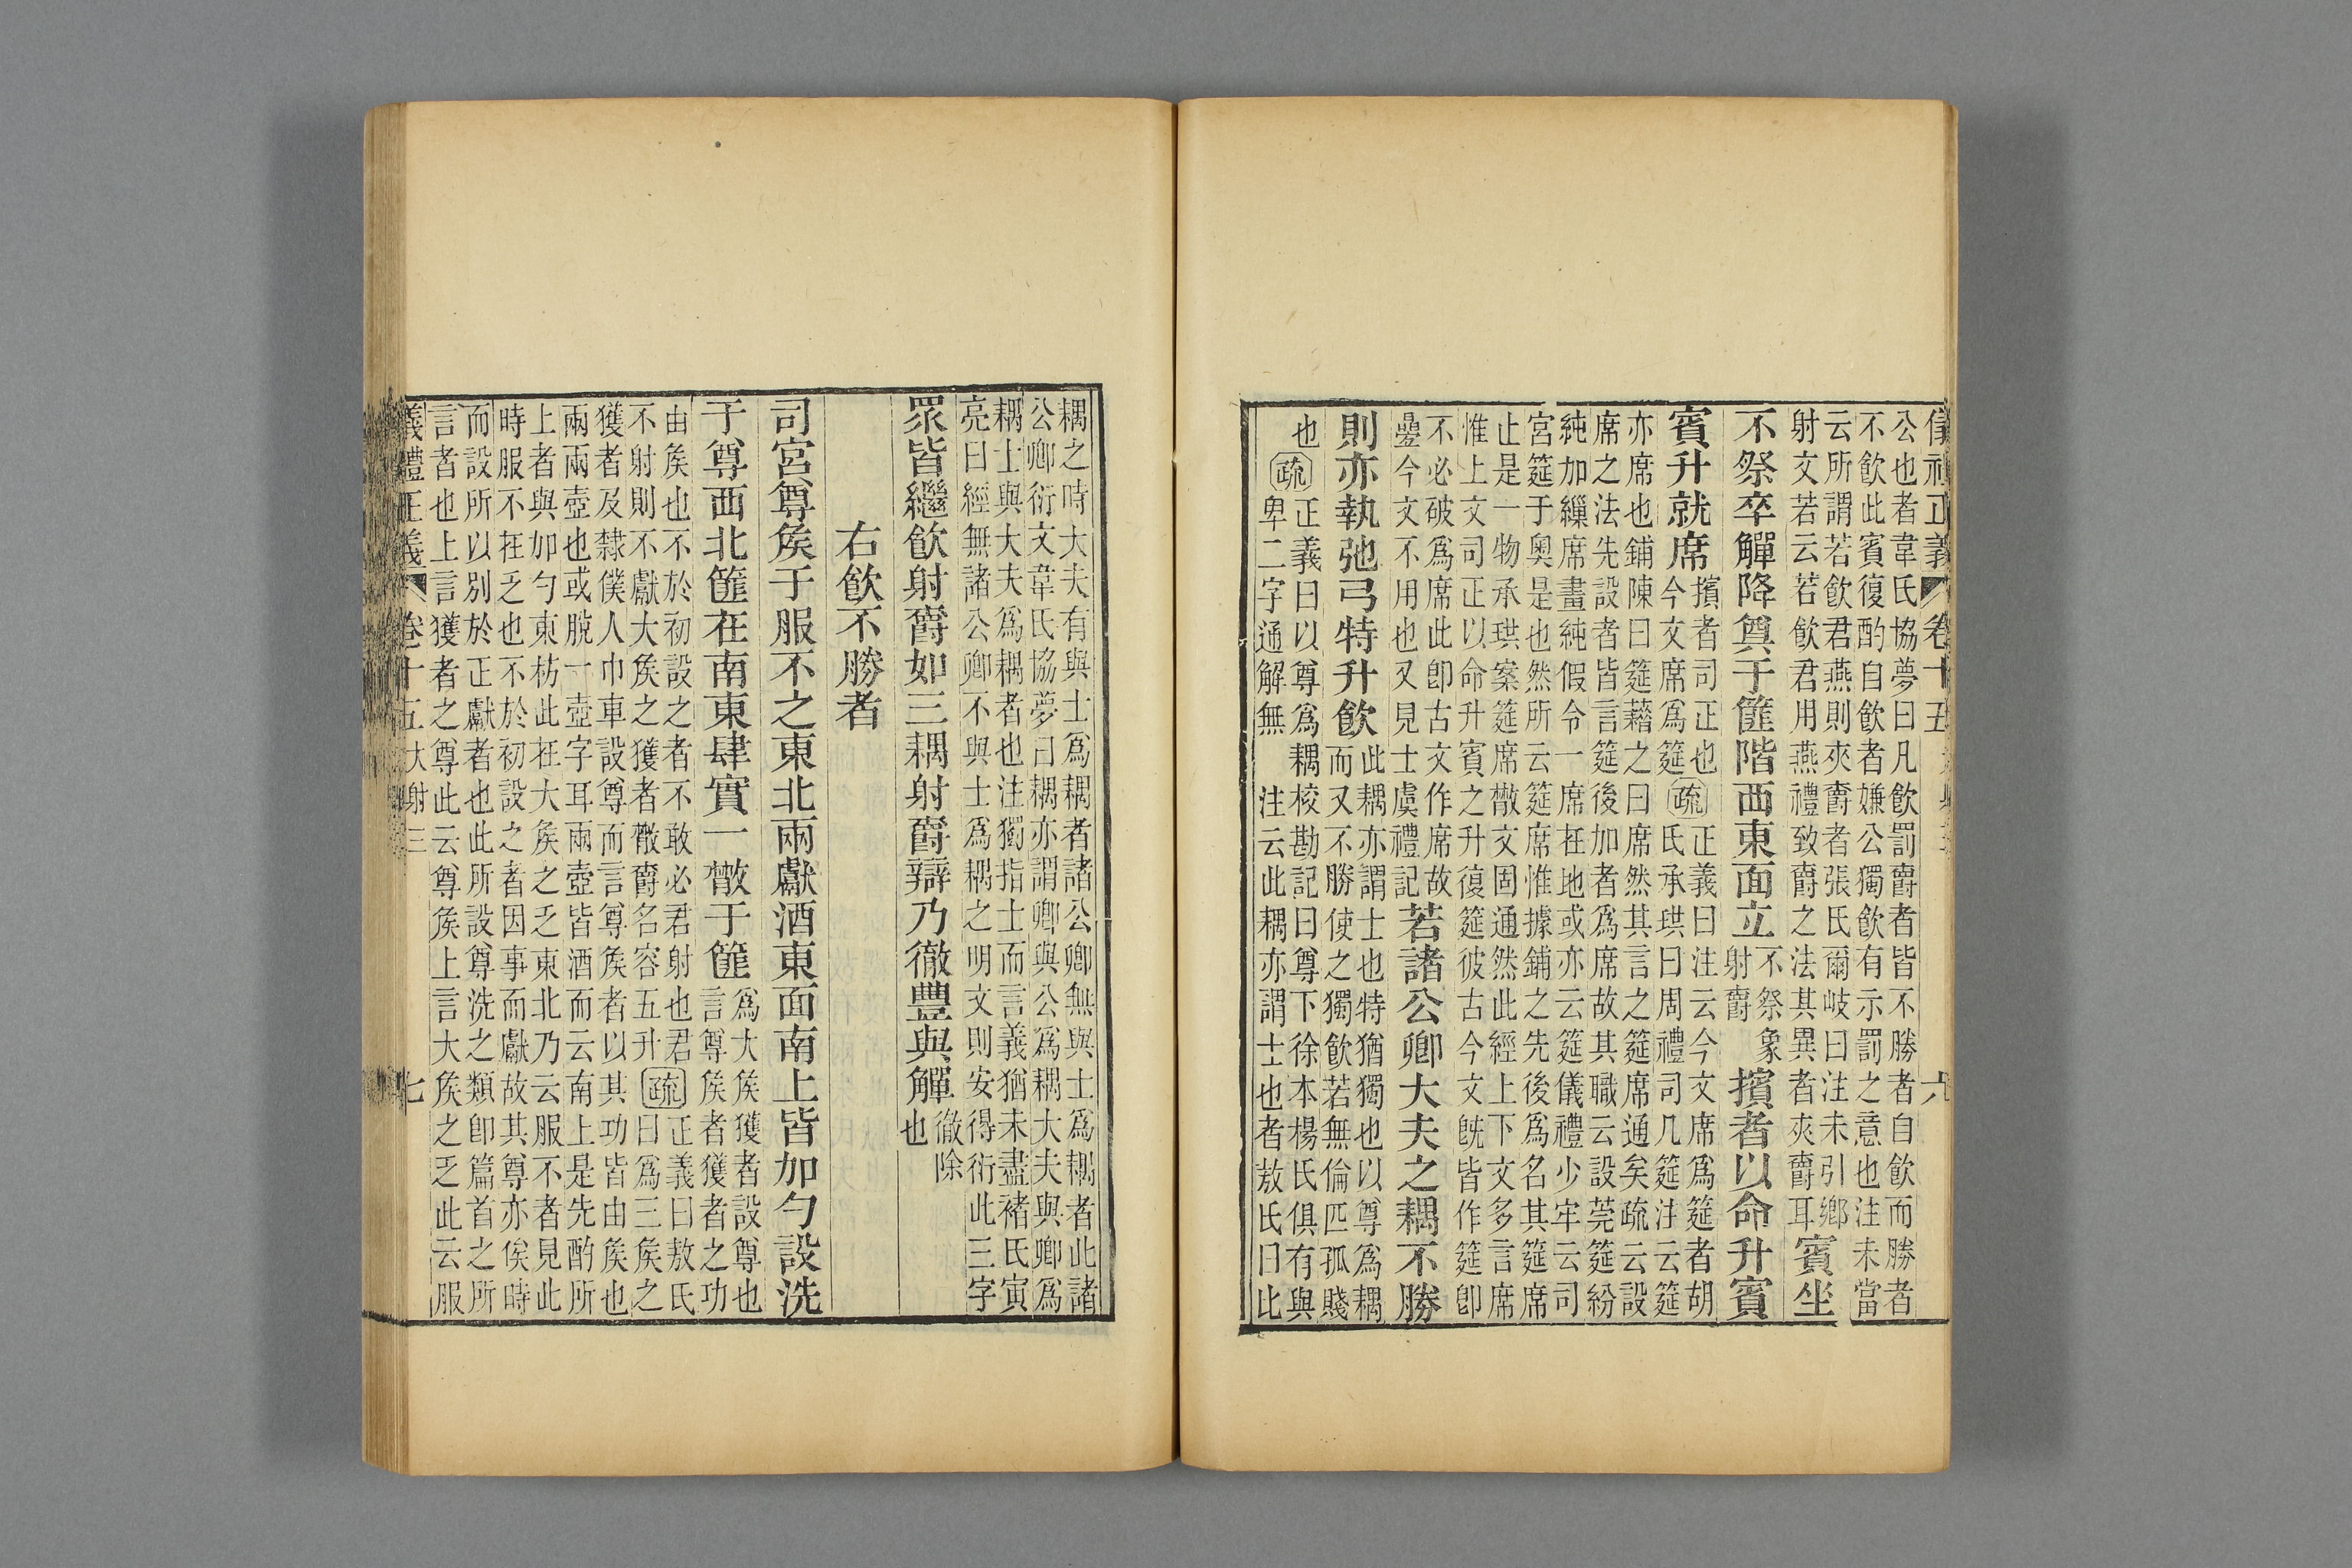 儀禮正義 卷十五 六
公也者韋氏協夢曰凡飲罰爵者皆不勝者自飲而勝者
不飲此賓復酌自飲者嫌公獨飲有示罰之意也注未當
云所謂若飲君燕則夾爵者張氏爾岐曰注未引鄉
射文若云若飲君用燕禮致爵之法其異者夾爵耳
賓坐
不祭卒觶降奠于篚階西東面立
不祭象
射爵
擯者以命升賓
賓升就席
擯者司正也
今文席爲筵
疏
正義曰注云今文席爲筵者胡
氏承珙曰周禮司几筵注云筵
亦席也鋪陳曰筵藉之曰席然其言之筵席通矣疏云設
席之法先設者皆言筵後加者爲席故其職云設莞筵紛
純加繅席畫純假令一席在地或亦云筵儀禮少牢云司
宮筵于奧是也然所云筵席惟據鋪之先後爲名其筵席
止是一物承珙案筵席散文固通然此經上下文多言席
惟上文司正以命升賓之升復筵彼古今文旣皆作筵卽
不必破爲席此卽古文作席故
疊今文不用也又見士虞禮記
若諸公卿大夫之耦不勝
則亦執弛弓特升飲
此耦亦謂士也特猶獨也以尊爲耦
而又不勝使之獨飲若無倫匹孤賤
也
疏
正義曰以尊爲耦校勘記曰尊下徐本楊氏俱有與
卑二字通解無 注云此耦亦謂士也者敖氏曰此
耦之時大夫有與士爲耦者諸公卿無與士爲耦者此諸
公卿衍文韋氏協夢曰耦亦謂卿與公爲耦大夫與卿爲
耦士與大夫爲耦者也注獨指士而言義猶未盡褚氏寅
亮曰經無諸公卿不與士爲耦之明文則安得衍此三字
眾皆繼飲射爵如三耦射爵辯乃徹豐與觶
徹除
也
右飲不勝者
司宮尊矦于服不之東北兩獻酒東面南上皆加勺設洗
于尊西北篚在南東肆實一散于篚
爲大矦獲者設尊也
言尊矦者獲者之功
由矦也不於初設之者不敢必君射也君
不射則不獻大矦之獲者散爵名容五升
疏
正義曰敖氏
曰爲三矦之
獲者及隸僕人巾車設尊而言尊矦者以其功皆由矦也
兩兩壺也或脫一壺字耳兩壺皆酒而云南上是先酌所
上者與如勺東枋此在大矦之乏東北乃云服不者見此
時服不在乏也不於初設之者因事而獻故其尊亦俟時
而設所以別於正獻者也此所設尊洗之類卽篇首之所
言者也上言獲者之尊此云尊矦上言大矦之乏此云服
義禮正義 卷十五 大射三 七